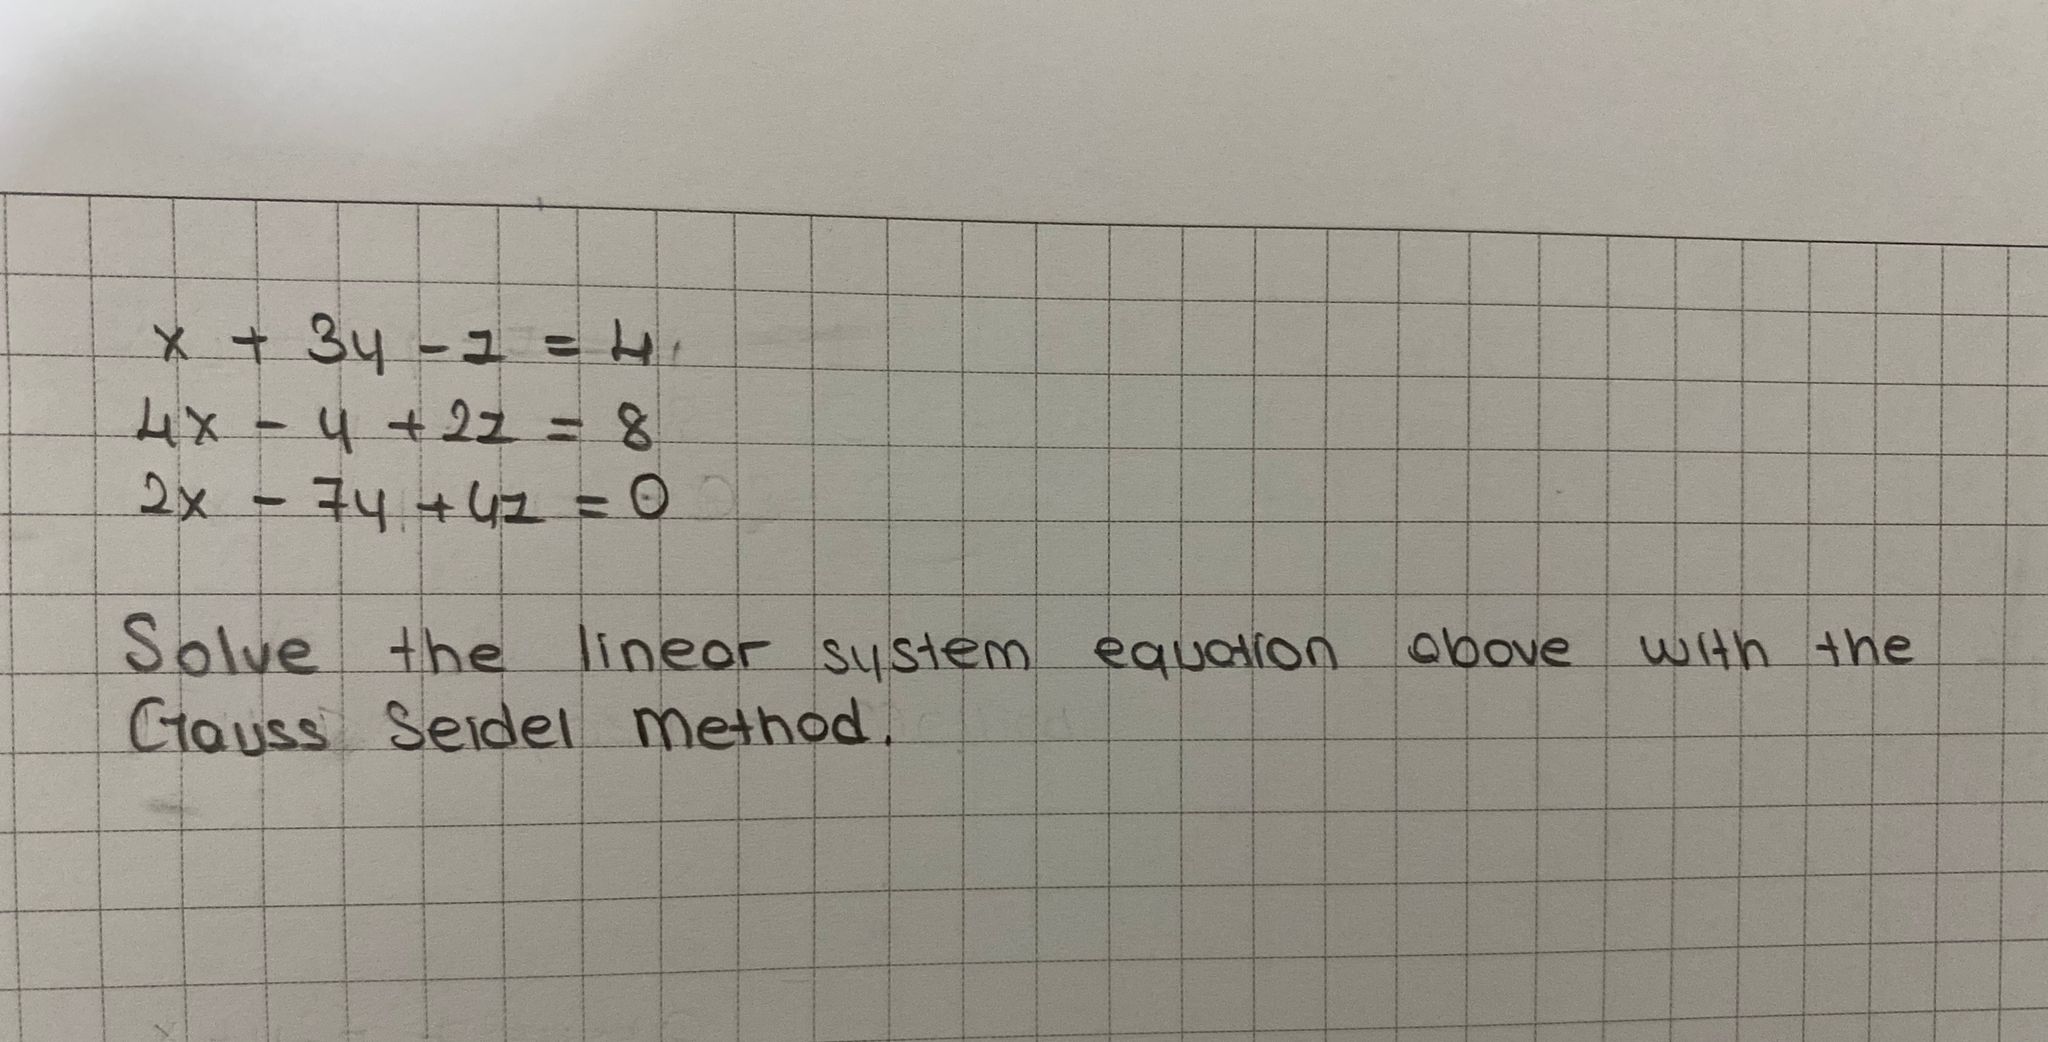 x + 3y - z = 4
4x - y + 2z = 8
2x - 7y + 4z = 0
Solve the linear system equation above with the
Gauss Seidel method.